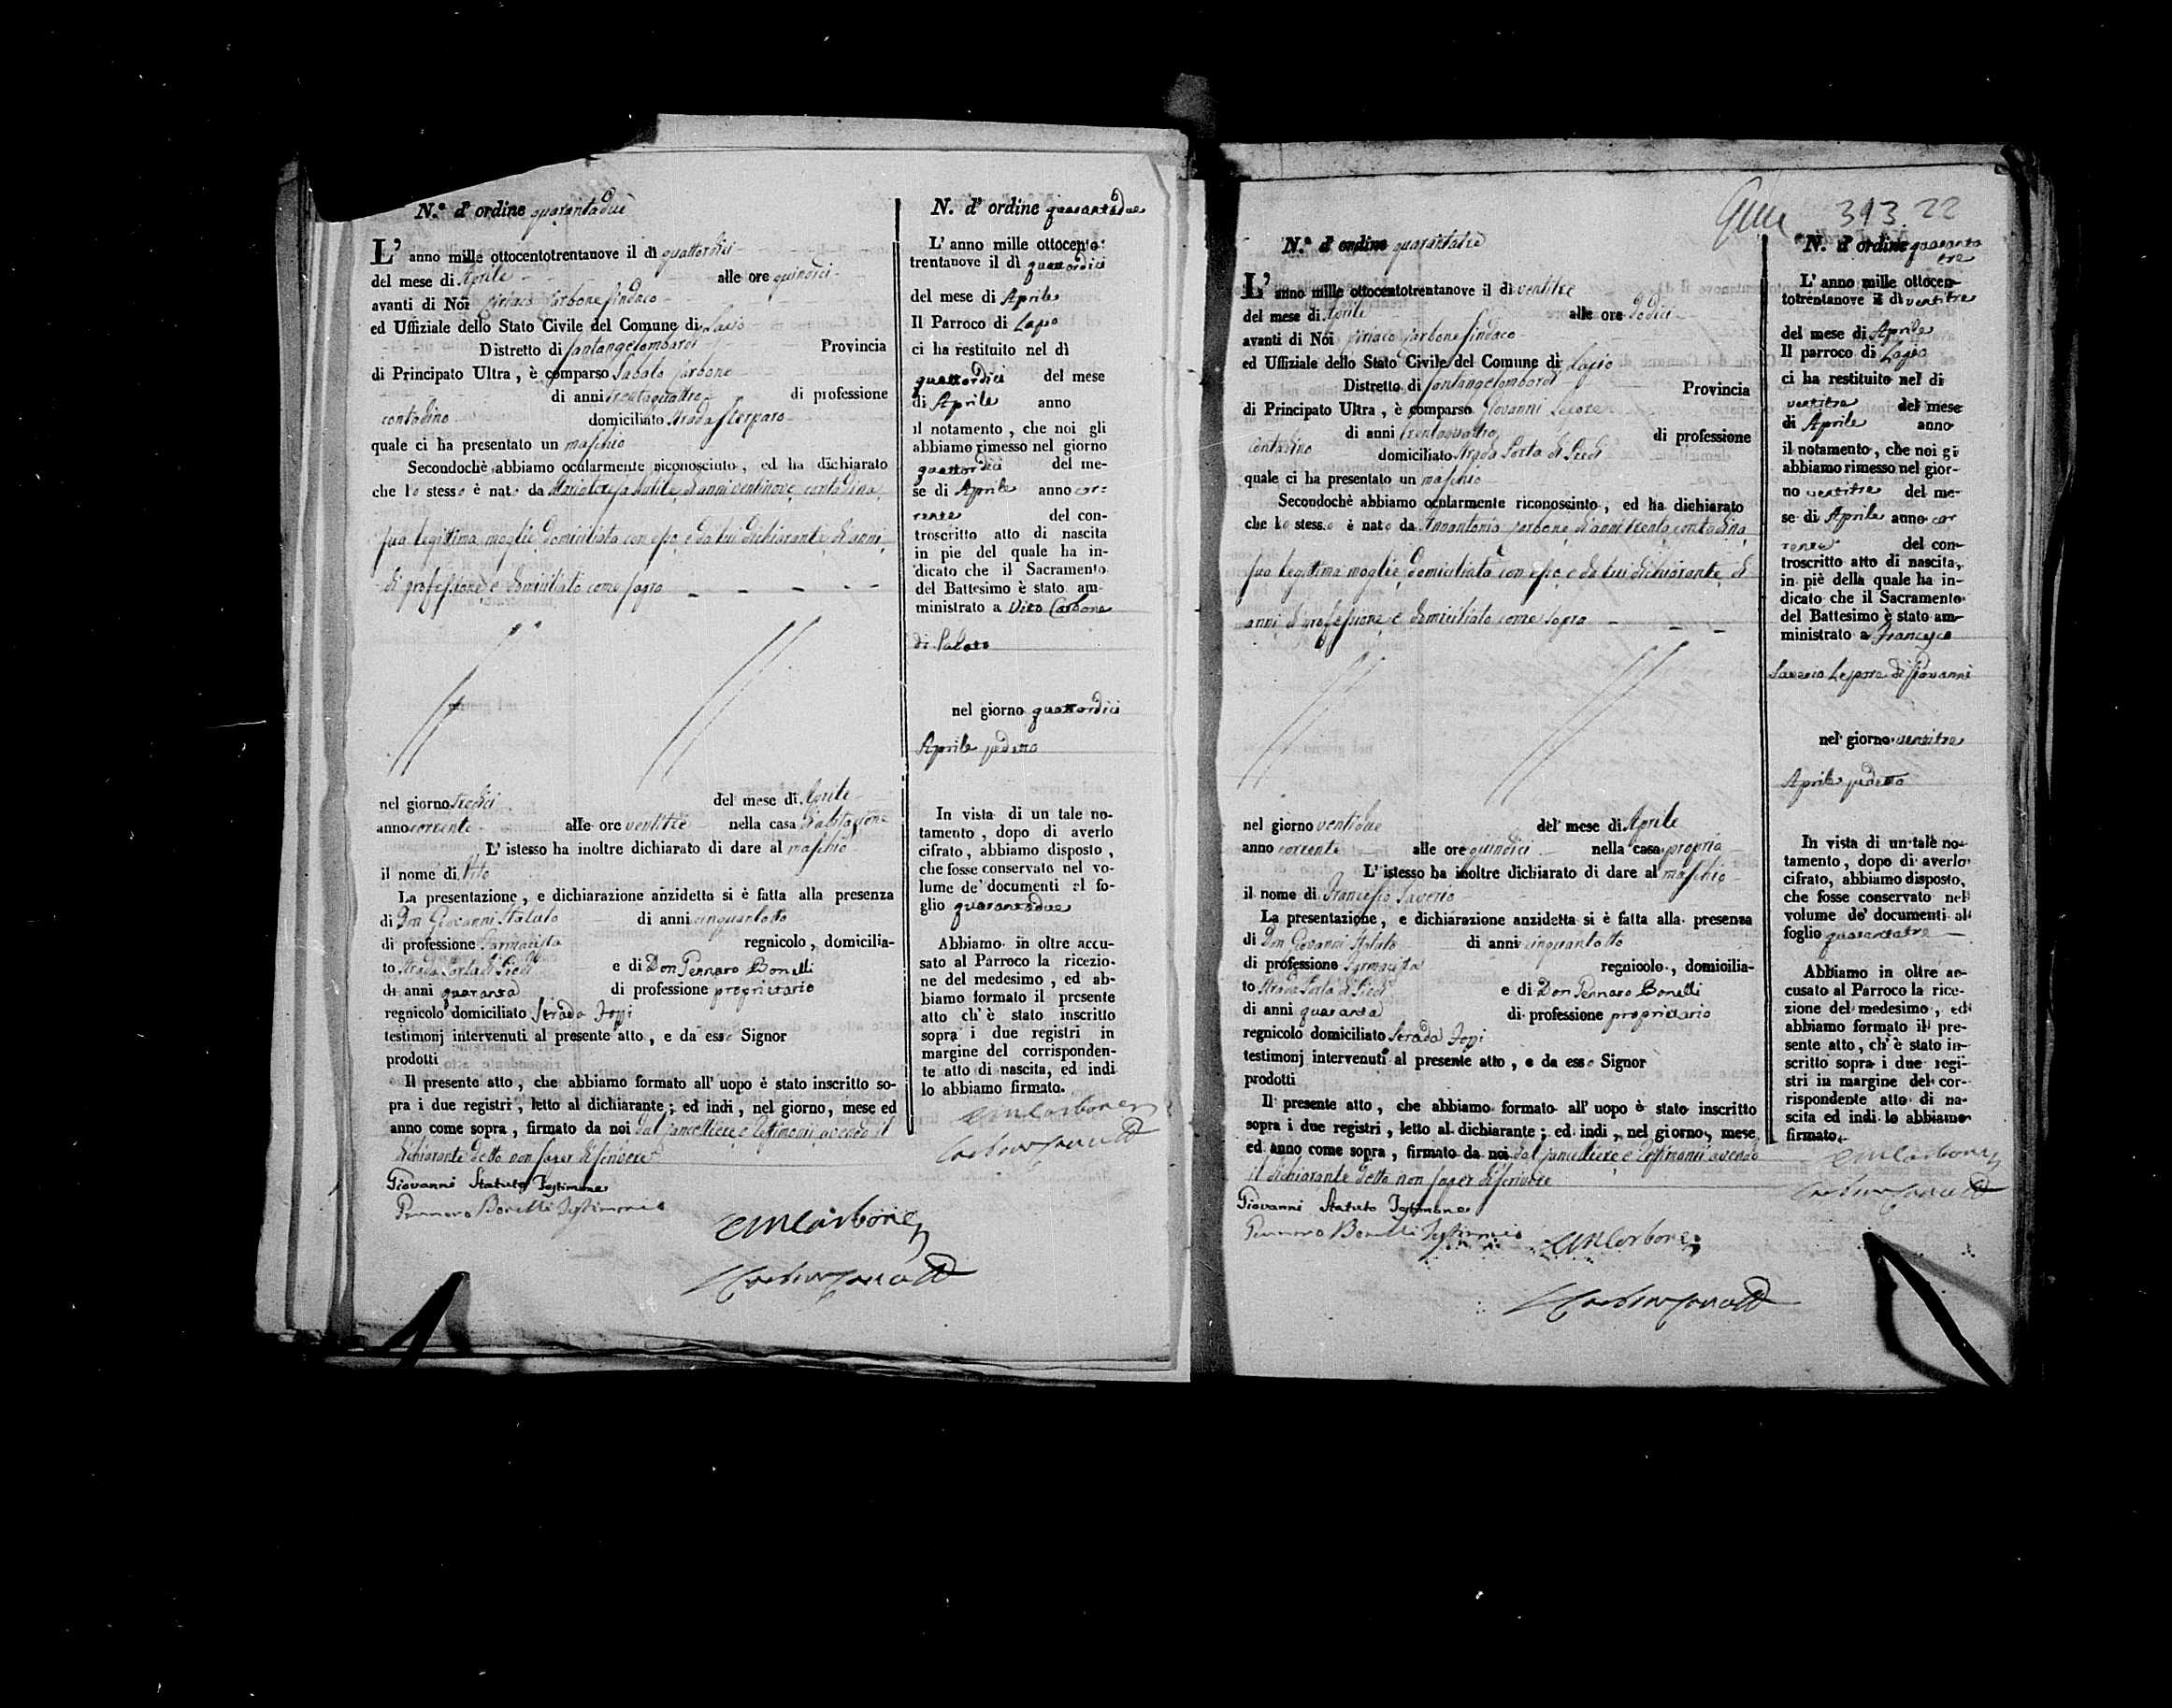 N.° d'ordine quarantadue
L'anno mille ottocentotrentanove il dì quattordici
del mese di Aprile alle ore quindici
avanti di Noi Ciriaco Carbone Sindaco
ed Uffiziale dello Stato Civile del Comune di Lapio
Distretto di Santangelombardi Provincia
di Principato Ultra, è comparso Sabato Carbone
di anni trentaquattro di professione
contadino domiciliato Strada
quale ci ha presentato un maschio
Secondochè abbiamo ocularmente riconosciuto, ed ha dichiarato
che lo stesso è nato da di anni ventinove contadina
sua legittima moglie domiciliata con esso, e da lui dichiarante di anni,
di professione e domiciliato come sopra
nel giorno tredici del mese di Aprile
anno corrente alle ore ventitre nella casa d'abitazione
L'istesso ha inoltre dichiarato di dare al maschio
il nome di Vito
La presentazione, e dichiarazione anzidetta si è fatta alla presenza
di Don Giovanni Statuto di anni cinquantotto
di professione Farmacista regnicolo, domicilia-
to Strada Porta di Piedi e di Don Gennaro Bonelli
di anni quaranta di professione proprietario
regnicolo domiciliato Strada
testimonj intervenuti al presente atto, e da esso Signor
prodotti
Il presente atto, che abbiamo formato all'uopo è stato inscritto so-
pra i due registri, letto al dichiarante; ed indi, nel giorno, mese ed
anno come sopra, firmato da noi dal Cancelliere e testimonii avendo il
dichiarante detto non saper di scrivere
Giovanni Statuto Testimone
Gennaro Bonelli Testimonio
Carbone
N. d'ordine quarantadue
L'anno mille ottocento-
trentanove il dì quattordici
del mese di Aprile
Il Parroco di Lapio
ci ha restituito nel dì
quattordici del mese
di Aprile anno
il notamento, che noi gli
abbiamo rimesso nel giorno
quattordici del me-
se di Aprile anno cor-
rente del con-
troscritto atto di nascita
in pie del quale ha in-
dicato che il Sacramento
del Battesimo è stato am-
ministrato a Vito Carbone
di Sabato
nel giorno quattordici
Aprile sudetto
In vista di un tale no-
tamento, dopo di averlo
cifrato, abbiamo disposto,
che fosse conservato nel vo-
lume de' documenti al fo-
glio quarantadue
Abbiamo in oltre accu-
sato al Parroco la ricezio-
ne del medesimo, ed ab-
biamo formato il presente
atto ch'è stato inscritto
sopra i due registri in
margine del corrisponden-
te atto di nascita, ed indi
lo abbiamo firmato.
Carbone
393 22
N.° d'ordine quarantatre
L'anno mille ottocentotrentanove il di ventitre
del mese di Aprile alle ore dodici
avanti di Noi Ciriaco Carbone Sindaco
ed Uffiziale dello Stato Civile del Comune di Lapio
Distretto di Santangelombardi Provincia
di Principato Ultra, è comparso Giovanni Lepore
di anni trentaquattro di professione
contadino domiciliato Strada Porta di Piedi
quale ci ha presentato un maschio
Secondochè abbiamo ocularmente riconosciuto, ed ha dichiarato
che lo stesso è nato da Annantonia Carbone di anni trenta contadina
sua legittima moglie domiciliata con esso, e da lui dichiarante di
anni di professione e domiciliato come sopra
nel giorno ventidue del mese di Aprile
anno corrente alle ore quindici nella casa propria
L'istesso ha inoltre dichiarato di dare al maschio
il nome di Francesco Saverio
La presentazione, e dichiarazione anzidetta si è fatta alla presenza
di Don Giovanni Statuto di anni cinquantotto
di professione Farmacista regnicolo, domicilia-
to Strada Porta di Piedi e di Don Gennaro Bonelli
di anni quaranta di professione proprietario
regnicolo domiciliato Strada
testimonj intervenuti al presente atto, e da esso Signor
prodotti
Il presente atto, che abbiamo formato all'uopo è stato inscritto
sopra i due registri, letto al dichiarante; ed indi, nel giorno, mese
ed anno come sopra, firmato da noi dal Cancelliere e testimonii avendo
il dichiarante detto non saper di scrivere
Giovanni Statuto Testimone
Gennaro Bonelli Testimonio
Carbone
N. d'ordine quaranta
tre
L'anno mille ottocen-
totrentanove il dì ventitre
del mese di Aprile
Il parroco di Lapio
ci ha restituito nel di
ventitre del mese
di Aprile anno
il notamento, che noi gi
abbiamo rimesso nel gior-
no ventitre del me-
se di Aprile anno cor
rente del con-
troscritto atto di nascita,
in piè della quale ha in-
dicato che il Sacramento
del Battesimo è stato am-
ministrato a Francesco
Saverio Lepore di Giovanni
nel giorno ventitre
Aprile sudetto
In vista di un tale no-
tamento, dopo di averlo
cifrato, abbiamo disposto,
che fosse conservato nel
volume de' documenti al
foglio quarantatre
Abbiamo in oltre ac-
cusato al Parroco la rice-
zione del medesimo, ed
abbiamo formato il pre-
sente atto, ch'è stato in-
scritto sopra i due regi-
stri in margine del cor-
rispondente atto di na-
scita ed indi lo abbiamo
firmato.
Carbone